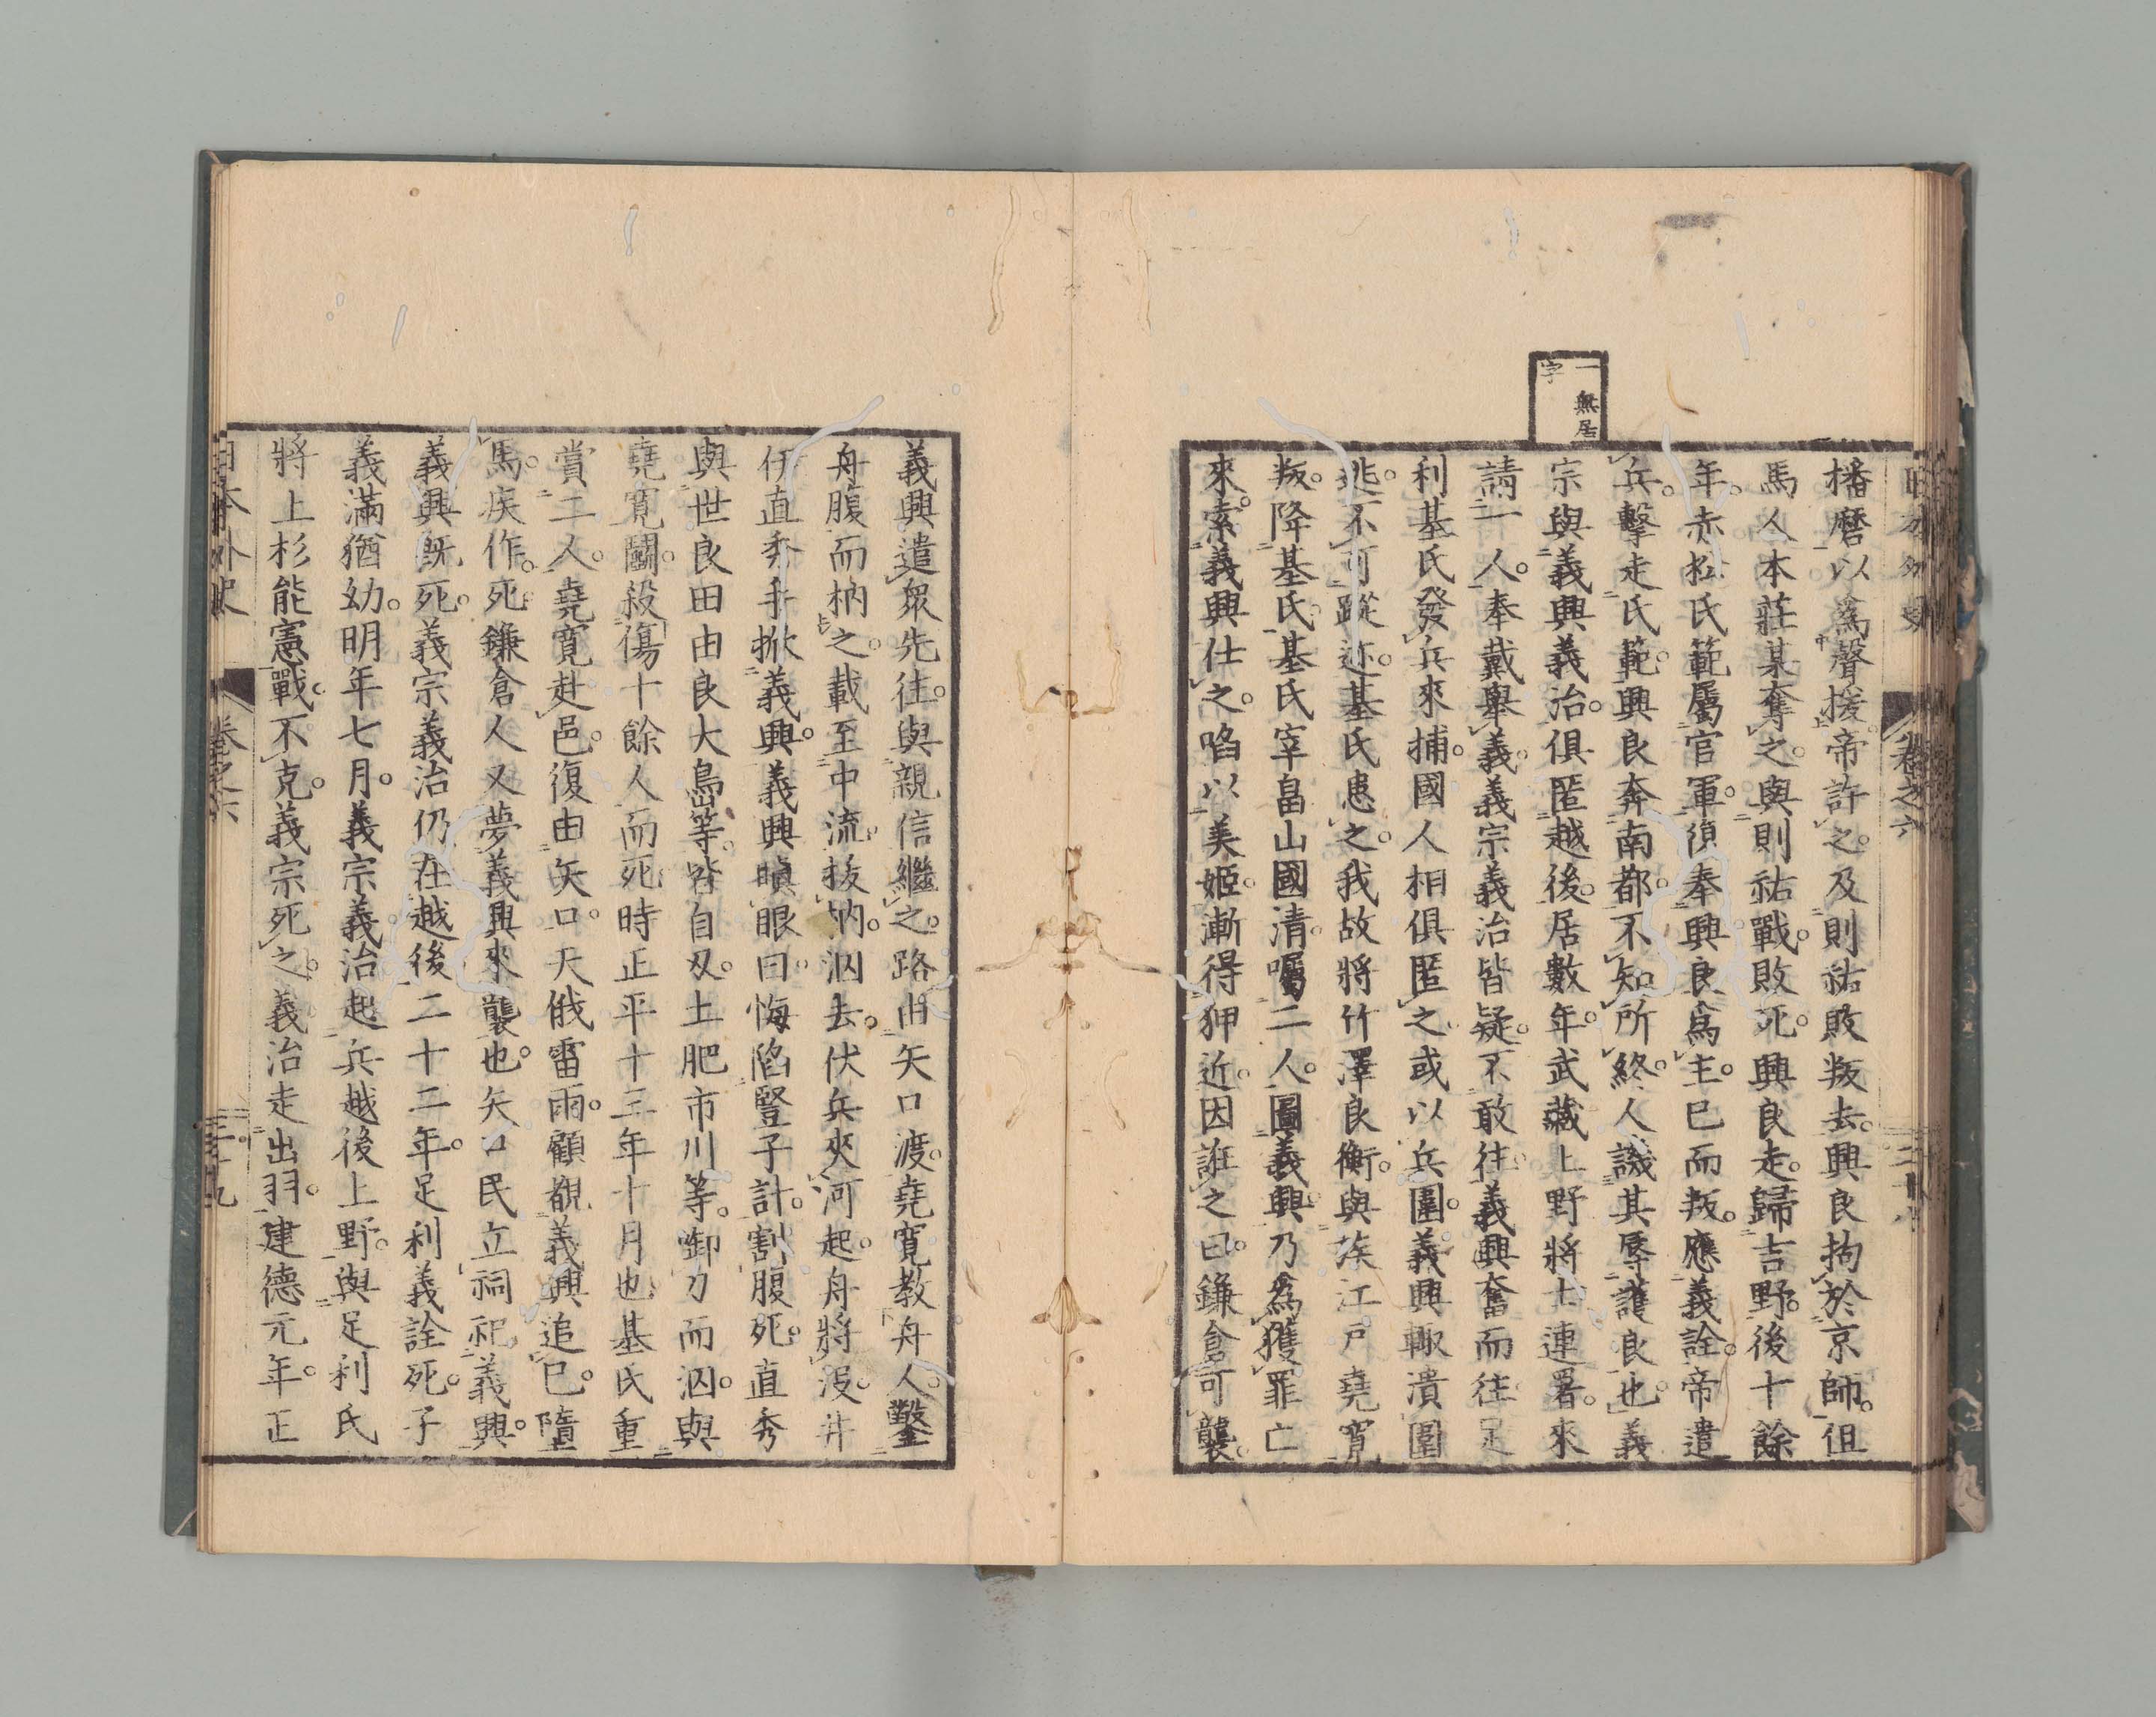 日本外史　卷之六　二十八
一無居
字
播磨以爲聲援。帝許之。及則祐敗叛去。興良拘於京師。徂
馬人本莊某奪之。與則祐戰。敗死。興良走。歸吉野。後十餘
年。赤松氏範屬官軍。復奉興良爲主。已而叛。應義詮。帝遣
兵。擊走氏範。興良奔南都。不知所終。人譏其辱護良也。義
宗與義興義治。俱匿越後。居數年。武藏上野將士連署。來
請一人。奉戴舉義。義宗義治皆疑。不敢往。義興奮而往。足
利基氏發兵來捕。國人相俱匿之。或以兵圍。義興輙潰圍
逃。不可蹤迹。基氏患之。我故將竹澤良衡。與族江戶堯寬
叛。降基氏。基氏宰畠山國清。囑二人。圖義興。乃爲獲罪亡
來。索義興仕之。啗以美姬。漸得狎近。因誑之曰。鎌倉可襲。
義興遣衆先往。與親信繼之。路由矢口渡。堯寬敎舟人。鑿
舟腹而枘之。載至中流。拔枘。泅去。伏兵夾河起。舟將沒。井
伊直秀手掀義興。義興瞋眼曰。悔陷豎子計。割腹死。直秀
與世良田由良大島等。皆自刄。土肥市川等。啣刀而泅。與
堯寬鬭。殺傷十餘人而死。時正平十三年十月也。基氏重
賞二人。堯寬赴邑。復由矢口。天俄雷雨。顧覩義興追已。墮
馬。疾作。死。鎌倉人又夢義興來襲也。矢口民立祠祀義興。
義興既死。義宗義治仍在越後。二十二年。足利義詮死。子
義滿猶幼。明年七月。義宗義治起兵越後上野。與足利氏
將上杉能憲戰。不克。義宗死之。義治走出羽。建德元年。正
日本外史　卷之六　二十九